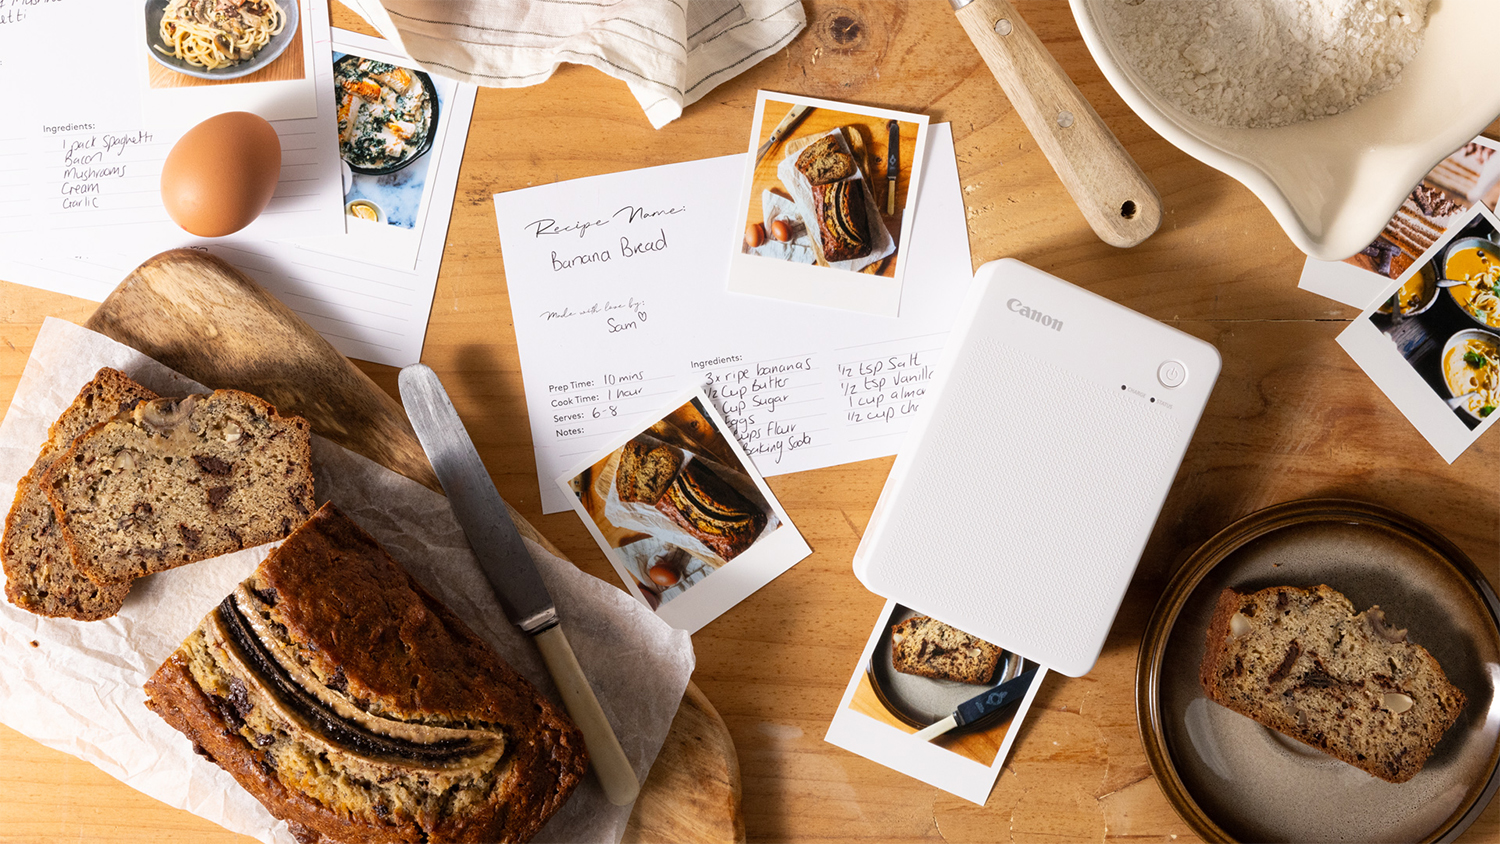 Ingredients:
1 pack Spaghetti
Bacon
Mushrooms
Cream
Garlic
Recipe Name:
Banana Bread
Made with love by:
Sam
Prep Time: 10 mins
Cook Time: 1 hour
Serves: 6-8
Notes:
Ingredients:
3x ripe bananas
1/2 cup Butter
cup Sugar
Eggs
Flour
Baking Soda
1/2 tsp Salt
1/2 tsp Vanilla
1 cup
1/2 cup
Canon